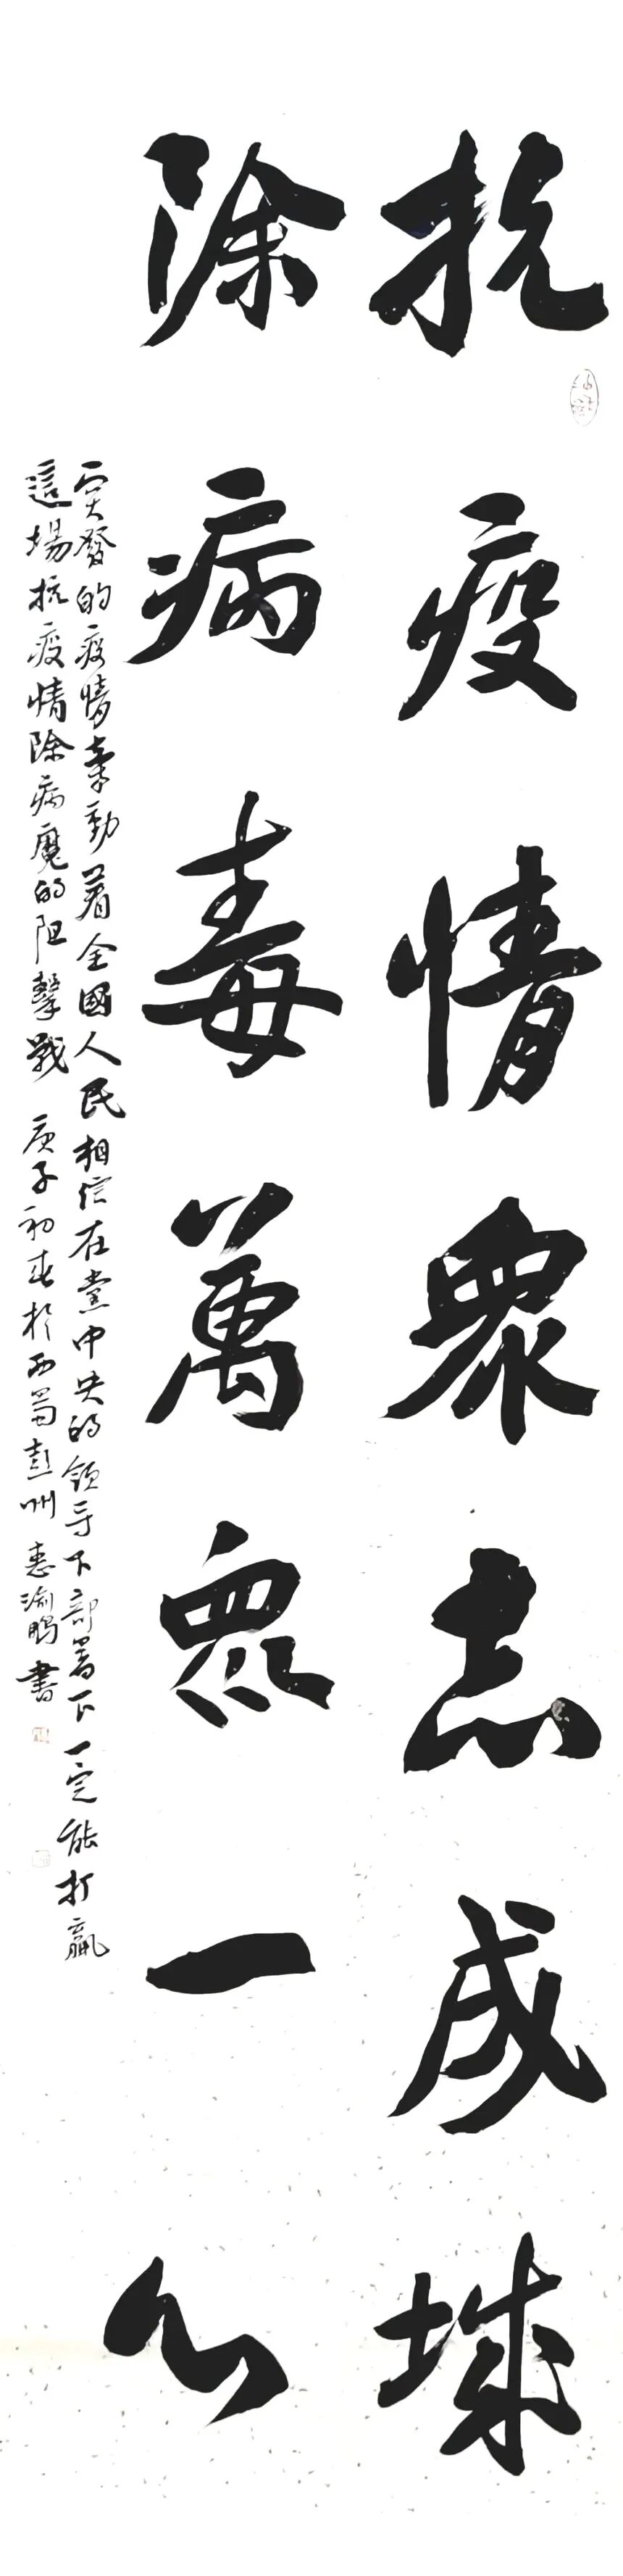 抗疫情衆志成城
除病毒萬眾一心
突發的疫情牽動着全國人民相信在党中央的领导下部署下一定能打贏
這場抗疫情除病魔的阻擊戰 庚子初春於西蜀彭州 惠渝鵬書